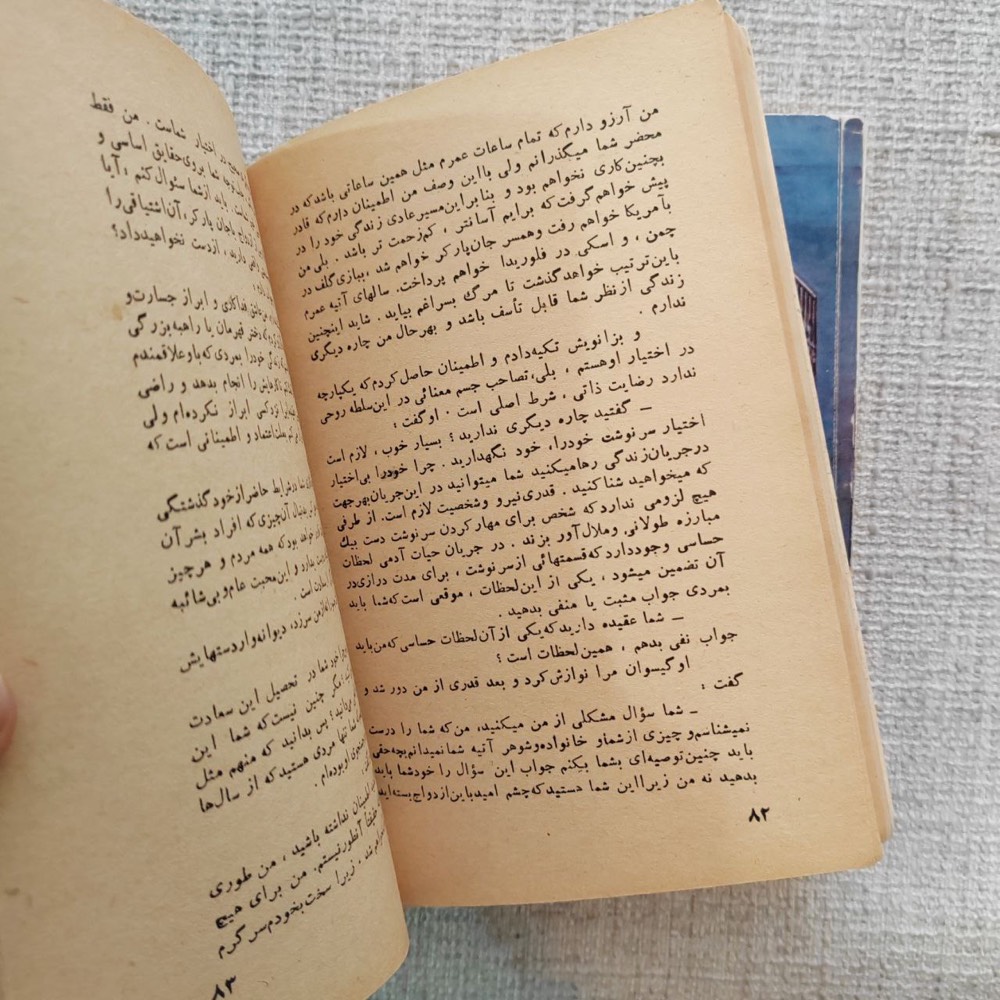 من آرزو دارم که تمام ساعات عمرم مثل همین ساعاتی باشد که در
محضر شما میگذرانم ولی بااین وصف من اطمینان دارم که قادر
بچنین کاری نخواهم بود و بنابراین مسیر عادی زندگی خود را در
پیش خواهم گرفت که برایم آسانتر ، کم‌زحمت تر باشد . بلی من
بآمریکا خواهم رفت وهمسر جان‌پارکر خواهم شد ، ببازی گلف در
چمن ، و اسکی در فلوریدا خواهم پرداخت. سالهای آتیه عمرم
باین‌ترتیب خواهد گذشت تا مرگ بسراغم بیاید . شاید اینچنین
زندگی از نظر شما قابل تأسف باشد و بهرحال من چاره دیگری
ندارم .
و بزانویش تکیه‌دادم و اطمینان حاصل کردم که یکپارچه
در اختیار اوهستم ، بلی، تصاحب جسم معنائی در این سلطه روحی
ندارد رضایت ذاتی ، شرط اصلی است . او گفت :
ـ گفتید چاره دیگری ندارید ؟ بسیار خوب ، لازم است
اختیار سرنوشت خودرا، خود نگهدارید . چرا خودرا بی‌اختیار
درجریان زندگی رهامیکنید شما میتوانید در این جریان بهرجهت
که میخواهید شنا کنید . قدری نیرو وشخصیت لازم است. از طرفی
هیچ لزومی ندارد که شخص برای مهار کردن سرنوشت دست بیك
مبارزه طولانی وملال‌آور بزند . در جریان حیات آدمی لحظات
حساسی وجود دارد که قسمتهائی از سرنوشت ، برای مدت درازی در
آن تضمین میشود ، یکی از این لحظات ، موقعی است که شما باید
بمردی جواب مثبت یا منفی بدهید .
ـ شما عقیده دارید که یکی از آن لحظات حساسی که من باید
جواب نفی بدهم ، همین لحظات است ؟
او گیسوان مرا نوازش کرد و بعد قدری از من دور شد و
گفت :
ـ شما سؤال مشکلی از من میکنید، من که شما را درست
نمیشناسم و چیزی از شما و خانواده و شوهر آتیه شما نمیدانم بچه حقی
باید چنین توصیه‌ای بشما بکنم جواب این سؤال را خودشما باید
بدهید نه من زیرا این شما هستید که چشم امید باین ازدواج بسته‌اید
۸۲
در اختیار شماست . من فقط
توجه شما بروی حقایق اساسی و
باید ازشما سئوال کنم ، آیا
باجان پارکر، آن اشتیاقی را
دارید ، ازدست نخواهید داد؟
فداکاری و ابراز جسارت و
قهرمان یا راهبه بزرگی
خودرا بمردی که باو علاقمندم
را انجام بدهد و راضی
کسی ابراز نکرده‌ام ولی
اعتماد و اطمینانی است که
شرایط حاضر از خود گذشتگی
آن چیزی که افراد بشر آن
بود که همه مردم و هر چیز
ندارد و این محبت عام و بی‌شائبه
است .
سرزد، دیوانه وار دستهایش
خود شما در تحصیل این سعادت
مگر چنین نیست که شما این
پس بدانید که منهم مثل
تنها مردی هستید که از سال‌ها
او بوده‌ام .
اطمینان نداشته باشید ، من طوری
آنطور نیستم. من برای هیچ
شد ، زیرا سخت بخودم سرگرم
۸۳